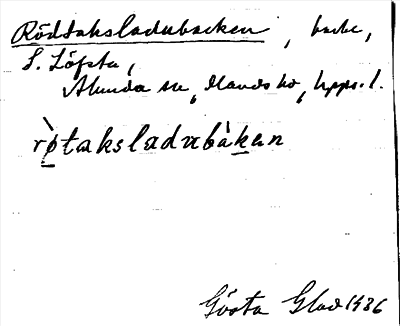 Rödtaksladubacken, backe,
S. Löfsta,
Alunda sn, Olands hd, Upps. l.
rø̀taksladubàkan
Gösta Glad 1936